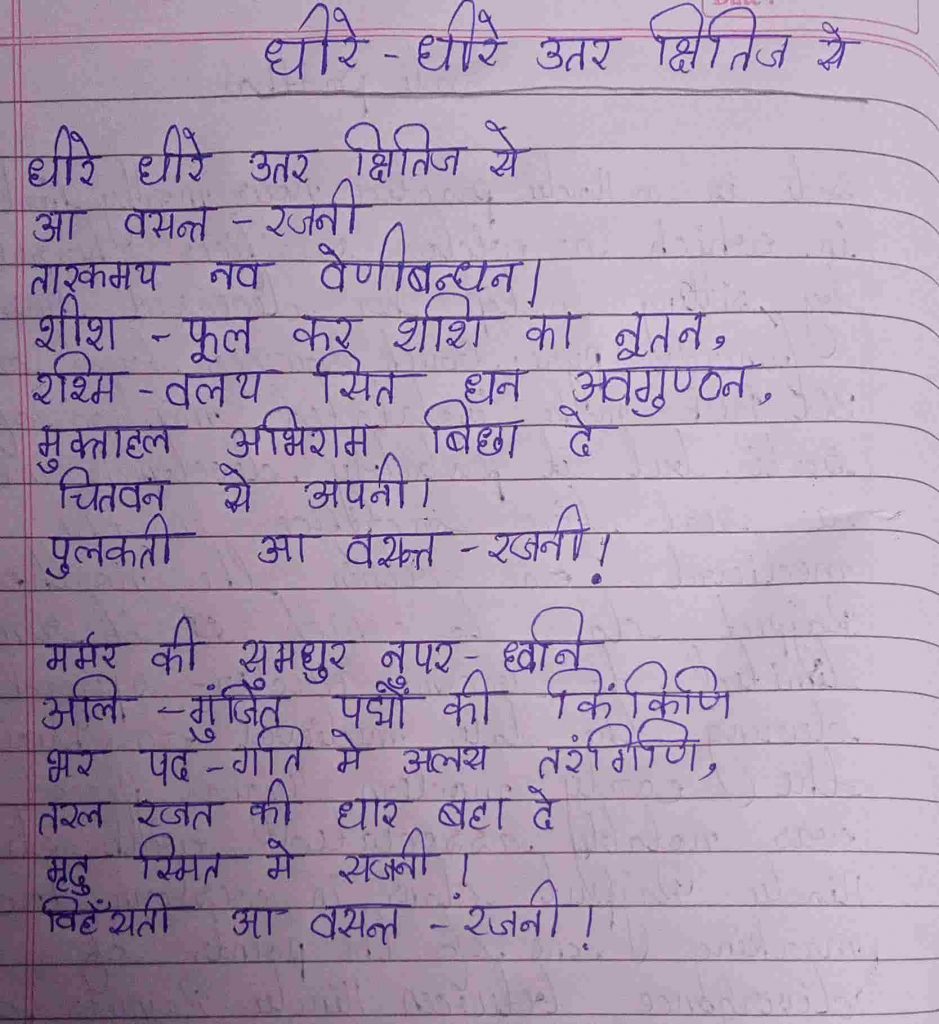 धीरे - धीरे उतर क्षितिज से
धीरे धीरे उतर क्षितिज से
आ वसन्त - रजनी
तारकमय नव वेणीबन्धन।
शीश - फूल कर शशि का नूतन,
रश्मि - वलय सित घन अवगुण्ठन,
मुक्ताहल अभिराम बिछा दे
चितवन से अपनी।
पुलकती आ वसन्त - रजनी!
मर्मर की सुमधुर नुपर - ध्वनि
अलि - गुंजित पद्मों की किंकिणि
भर पद - गति मे अलस तरंगिणि,
तरल रजत की धार बहा दे
मृदु स्मित मे सजनी!
विहँसती आ वसन्त - रजनी!